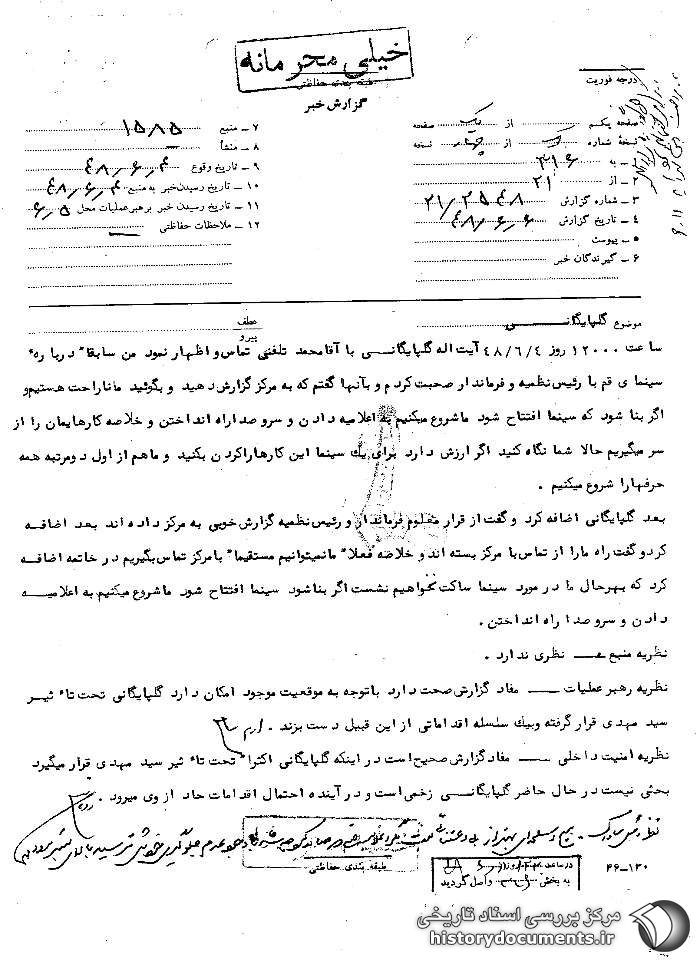 خیلی محرمانه
طبقه بندی حفاظتی
گزارش خبر
درجه فوریت
صفحه یکم از یک صفحه
نسخه شماره یک از چهار نسخه
۱ – به ۳۱۶
۲ – از ۲۱
۳ – شماره گزارش ۲۱/۲۵۴۸
۴ – تاریخ گزارش ۴۸/۶/۶
۵ – پیوست
۶ – گیرندگان خبر
۷ – منبع ۱۵۸۵
۸ – منشأ —
۹ – تاریخ وقوع ۴۸/۶/۴
۱۰ – تاریخ رسیدن خبر به منبع ۴۸/۶/۴
۱۱ – تاریخ رسیدن خبر برهبر عملیات محل ۶/۵
۱۲ – ملاحظات حفاظتی —
موضوع گلپایگانی
عطف
پیرو
ساعت ۱۲۰۰۰ روز ۴۸/۶/۴ آیت اله گلپایگانی با آقا محمد تلفنی تماس و اظهار نمود من سابقا" درباره"
سینما ی قم با رئیس نظمیه و فرماندار صحبت کردم و بآنها گفتم که به مرکز گزارش دهید و بگوئید ما ناراحت هستیم و
اگر بنا شود که سینما افتتاح شود ما شروع میکنیم به اعلامیه دادن و سرو صدا راه انداختن و خلاصه کارهایمان را از
سر میگیریم حالا شما نگاه کنید اگر ارزش دارد برای یك سینما این کارها را کردن بکنید و ما هم از اول دو مرتبه همه
حرفها را شروع میکنیم .
بعد گلپایگانی اضافه کرد و گفت از قرار معلوم فرماندار و رئیس نظمیه گزارش خوبی به مرکز داده اند بعد اضافه
کرد و گفت راه ما را از تماس با مرکز بسته اند و خلاصه فعلا" ما نمیتوانیم مستقیما" با مرکز تماس بگیریم در خاتمه اضافه
کرد که بهرحال ما در مورد سینما ساکت نخواهیم نشست اگر بنا شود سینما افتتاح شود ما شروع میکنیم به اعلامیه
دادن و سرو صدا راه انداختن .
نظریه منبع — نظری ندارد .
نظریه رهبر عملیات — مفاد گزارش صحت دارد با توجه به موقعیت موجود امکان دارد گلپایگانی تحت تاء ثیر
سید مهدی قرار گرفته و بیك سلسله اقداماتی از این قبیل دست بزند .
نظریه امنیت داخلی — مفاد گزارش صحیح است در اینکه گلپایگانی اکثرا" تحت تاء ثیر سید مهدی قرار میگیرد
بحثی نیست در حال حاضر گلپایگانی زخمی است و در آینده احتمال اقدامات حاد از وی میرود .
نظریه رئیس ساواک
طبقه بندی حفاظتی
در ساعت روز
به بخش واصل گردید
۴۶–۱۳۰
مرکز بررسی اسناد تاریخی
historydocuments.ir